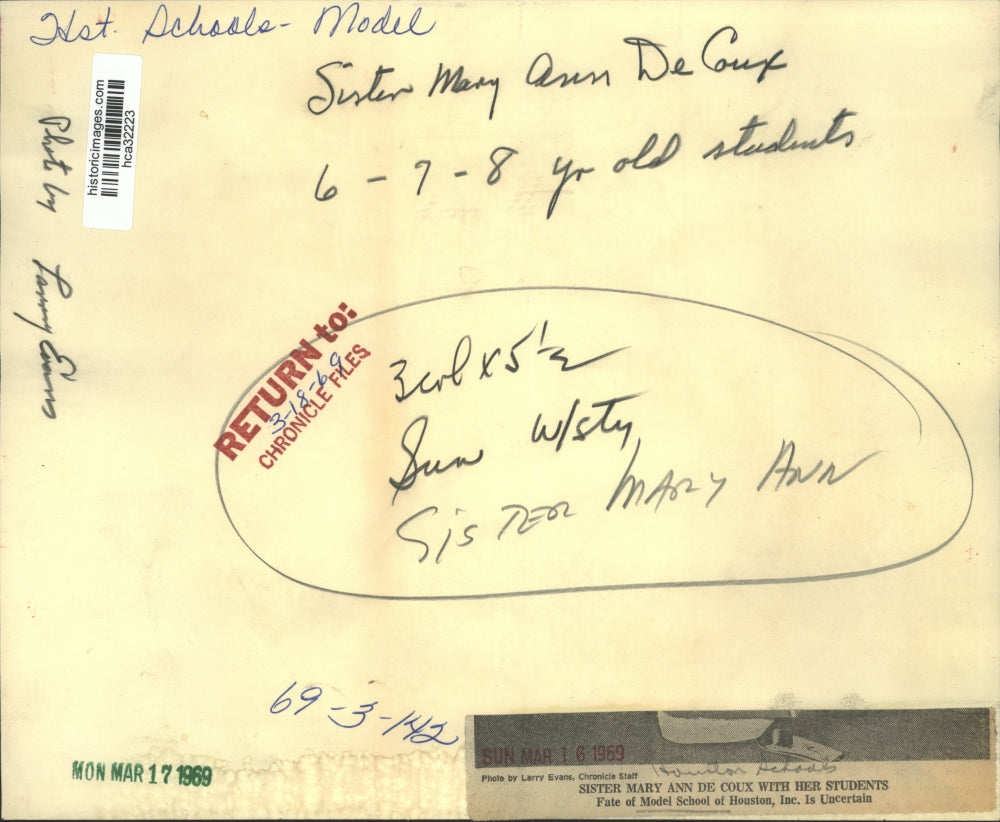 Hst. Schools - Model
Sister Mary Ann De Coux
6 - 7 - 8 yr old students
historicimages.com
hca32223
Photo by Larry Evans
RETURN to:
3-18-69
CHRONICLE FILES
3 col x 5 1/2
Sun w/sty
SISTER MARY ANN
69-3-142
MON MAR 17 1969
SUN MAR 16 1969
Photo by Larry Evans, Chronicle Staff
Houston Schools
SISTER MARY ANN DE COUX WITH HER STUDENTS
Fate of Model School of Houston, Inc. Is Uncertain